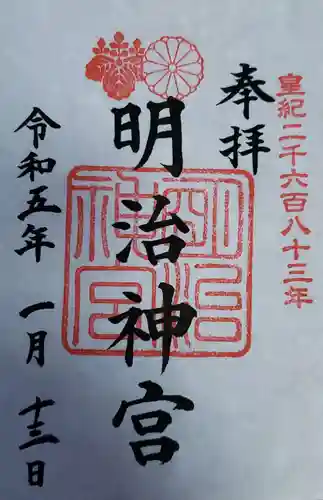 皇紀二千六百八十三年
奉拝
明治神宮
明治神宮
令和五年 一月 十三日